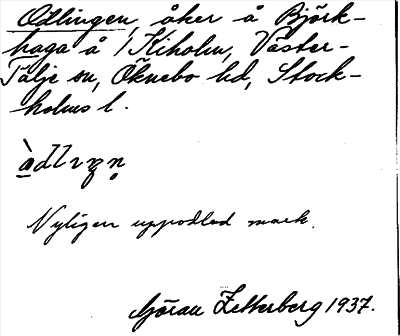 Odlingen, åker å Björk-
haga å /Kiholm, Väster-
Tälje sn, Öknebo hd, Stock-
holms l.
Nyligen uppodlad mark.
Göran Zetterberg 1937.